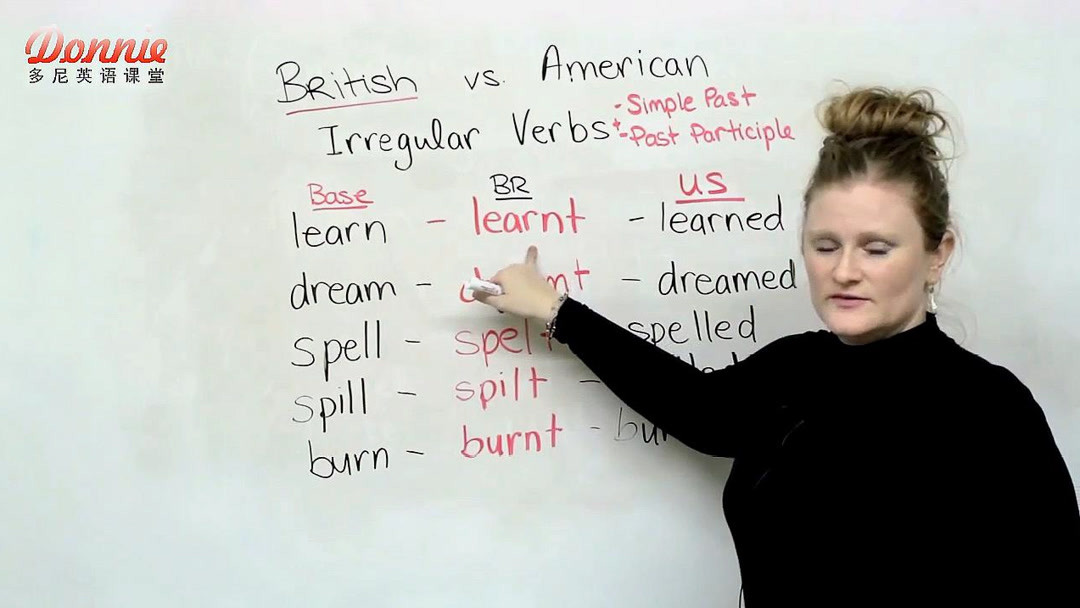 Donnie
多尼英语课堂
British vs. American
Irregular Verbs - Simple Past
+ - Past Participle
Base BR US
learn - learnt - learned
dream - - dreamed
spell - spelt - spelled
spill - spilt -
burn - burnt -